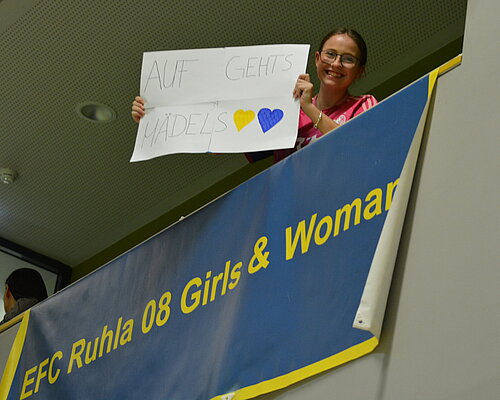 AUF GEHTS
MÄDELS
EFC Ruhla 08 Girls & Woman